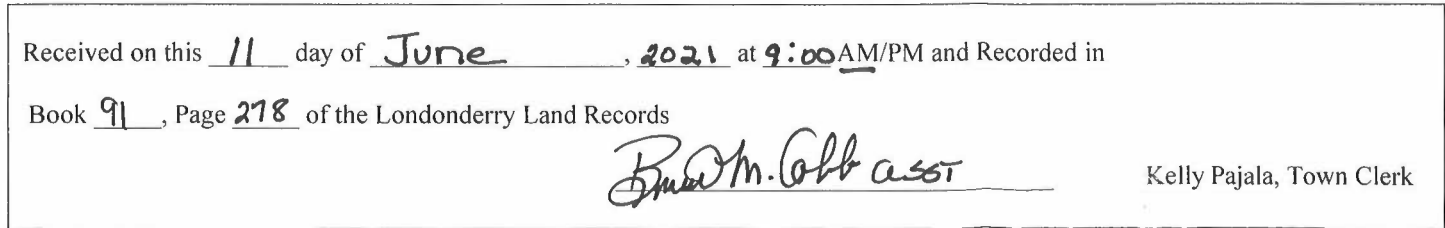 Received on this 11 day of June, 2021 at 9:00 AM/PM and Recorded in
Book 91, Page 278 of the Londonderry Land Records
M. Cobb asst Kelly Pajala, Town Clerk